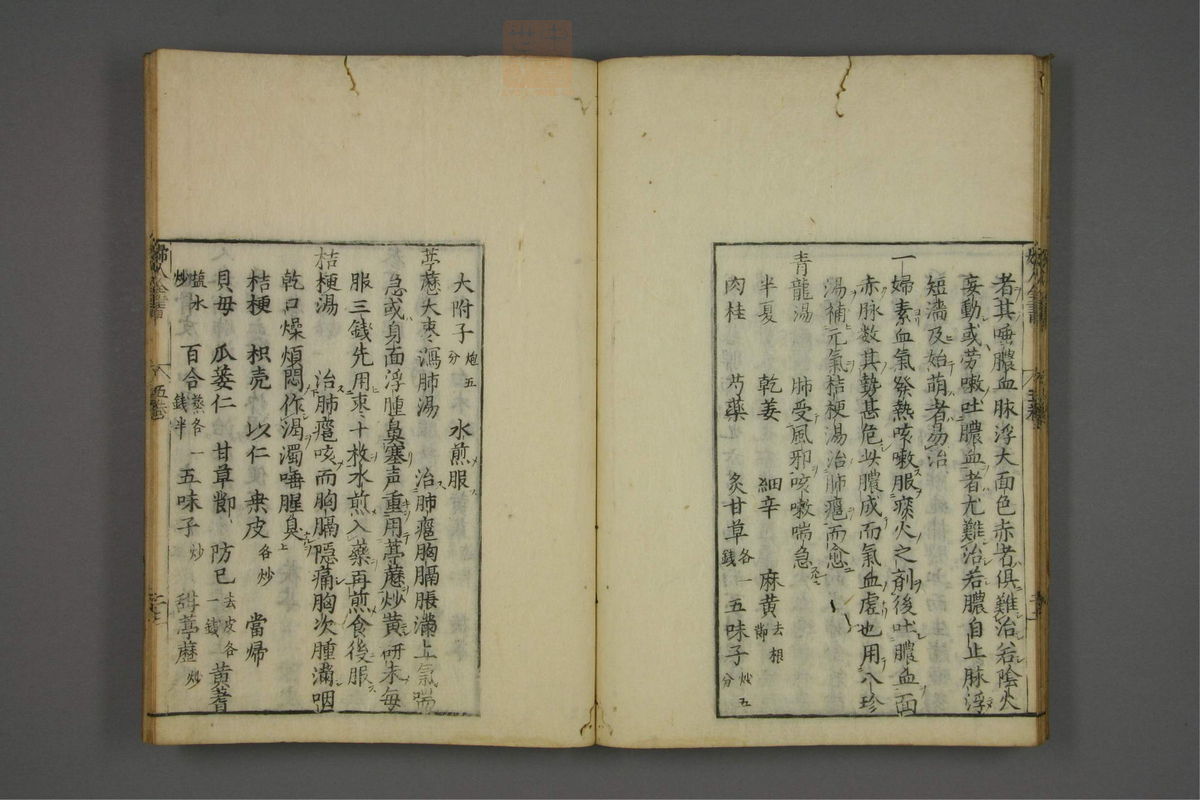 者其唾膿血脉浮大面色赤者俱難治若陰火
妄動或劳嗽吐膿血者尤難治若膿自止脉浮
短濇及始萌者易治
一婦素血氣發熱咳嗽服痰火之剤後吐膿血面
赤脉数其勢甚危此膿成而氣血虛也用八珍
湯補元氣桔梗湯治肺癰而愈
青龍湯 肺受風邪咳嗽喘急
半夏 乾姜 細辛 麻黄去根節
肉桂 芍藥 炙甘草各一錢 五味子炒五分
大附子炮五分 水煎服
葶藶大枣瀉肺湯 治肺癰胸膈脹滿上氣喘
急或身面浮腫鼻塞声重用葶藶炒黄研末每
服三錢先用枣十枚水煎入藥再煎食後服
桔梗湯 治肺癰咳而胸膈隠痛胸次腫滿咽
乾口燥煩悶作渴濁唾腥臭
桔梗 枳壳 苡仁 桒皮各炒 當帰
貝母 瓜蒌仁 甘草節 防己去皮各一錢 黄蓍
塩水炒 百合蒸各一錢半 五味子炒 甜葶藶炒